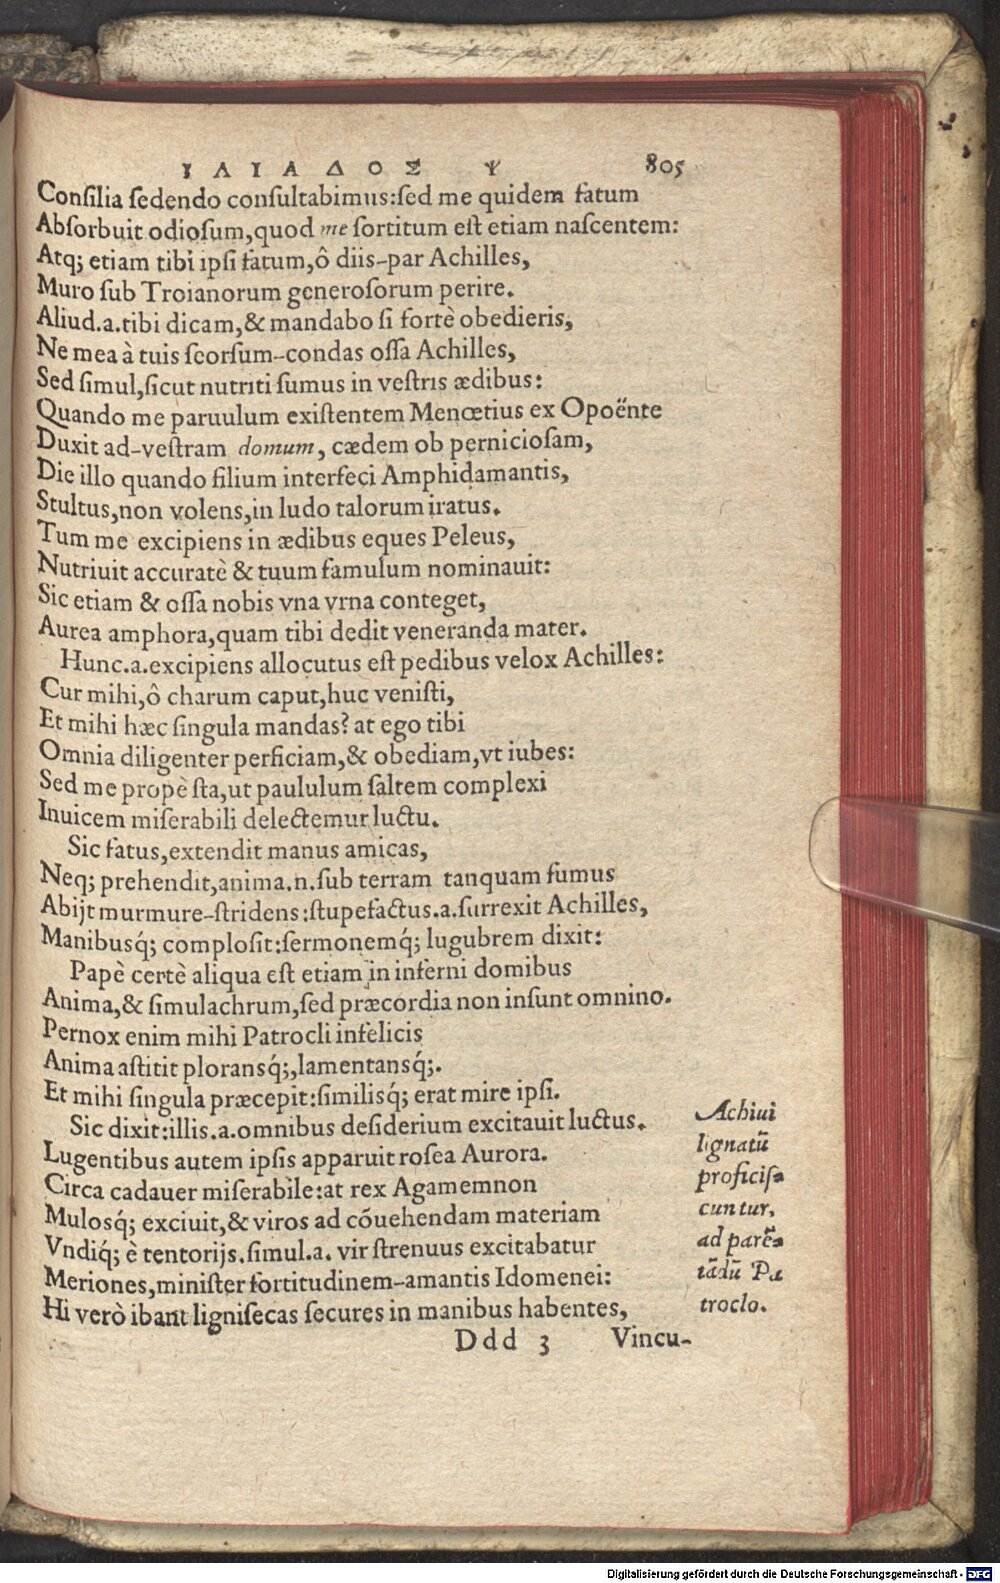 ΙΛΙΑΔΟΣ Ψ 805
Conſilia ſedendo conſultabimus:ſed me quidem fatum
Abſorbuit odioſum,quod me ſortitum eſt etiam naſcentem:
Atq; etiam tibi ipſi fatum,ô diis-par Achilles,
Muro ſub Troianorum generoſorum perire.
Aliud.a.tibi dicam,& mandabo ſi fortè obedieris,
Ne mea à tuis ſeorſum-condas oſſa Achilles,
Sed ſimul,ſicut nutriti ſumus in veſtris ædibus:
Quando me paruulum exiſtentem Menœtius ex Opoënte
Duxit ad-veſtram domum, cædem ob pernicioſam,
Die illo quando filium interfeci Amphidamantis,
Stultus,non volens,in ludo talorum iratus.
Tum me excipiens in ædibus eques Peleus,
Nutriuit accuratè & tuum famulum nominauit:
Sic etiam & oſſa nobis vna vrna conteget,
Aurea amphora,quam tibi dedit veneranda mater.
Hunc.a.excipiens allocutus eſt pedibus velox Achilles:
Cur mihi,ô charum caput,huc veniſti,
Et mihi hæc ſingula mandas? at ego tibi
Omnia diligenter perficiam,& obediam,vt iubes:
Sed me propè ſta,ut paululum ſaltem complexi
Inuicem miſerabili delectemur luctu.
Sic fatus,extendit manus amicas,
Neq; prehendit,anima.n.ſub terram tanquam fumus
Abijt murmure-ſtridens:ſtupefactus.a.ſurrexit Achilles,
Manibusq́; comploſit:ſermonemq́; lugubrem dixit:
Papè certè aliqua eſt etiam in inferni domibus
Anima,& ſimulachrum,ſed præcordia non inſunt omnino.
Pernox enim mihi Patrocli infelicis
Anima aſtitit ploransq́;,lamentansq́;.
Et mihi ſingula præcepit:ſimilisq́; erat mire ipſi.
Sic dixit:illis.a.omnibus deſiderium excitauit luctus.
Lugentibus autem ipſis apparuit roſea Aurora.
Circa cadauer miſerabile:at rex Agamemnon
Mulosq́; exciuit,& viros ad cõuehendam materiam
Vndiq́; è tentorijs.ſimul.a. vir ſtrenuus excitabatur
Meriones,miniſter fortitudinem-amantis Idomenei:
Hi verò ibant ligniſecas ſecures in manibus habentes,
Achiui
lignatũ
proficiſ-
cuntur,
ad parẽ-
tãdũ Pa
troclo.
Ddd 3 Vincu-
Digitalisierung gefördert durch die Deutsche Forschungsgemeinschaft - DFG